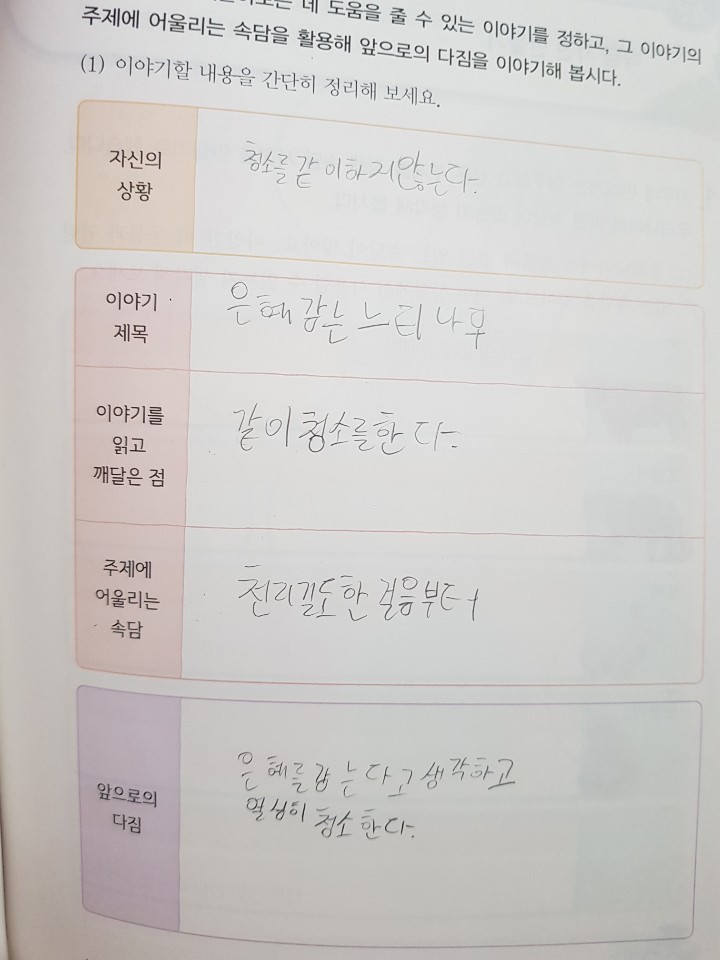 데 도움을 줄 수 있는 이야기를 정하고, 그 이야기의
주제에 어울리는 속담을 활용해 앞으로의 다짐을 이야기해 봅시다.
(1) 이야기할 내용을 간단히 정리해 보세요.
자신의
상황
청소를 같이하지않는다.
이야기
제목
은혜 갚는 느티나무
이야기를
읽고
깨달은 점
같이 청소를한다.
주제에
어울리는
속담
천리길도한걸음부터
앞으로의
다짐
은혜를갚는다고생각하고
열심히 청소한다.